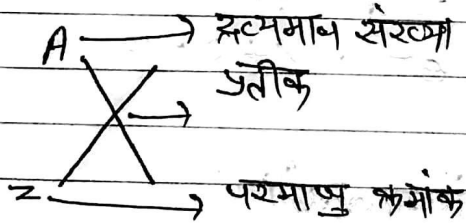 A → द्रव्यमान संख्या
X → प्रतीक
Z → परमाणु क्रमांक